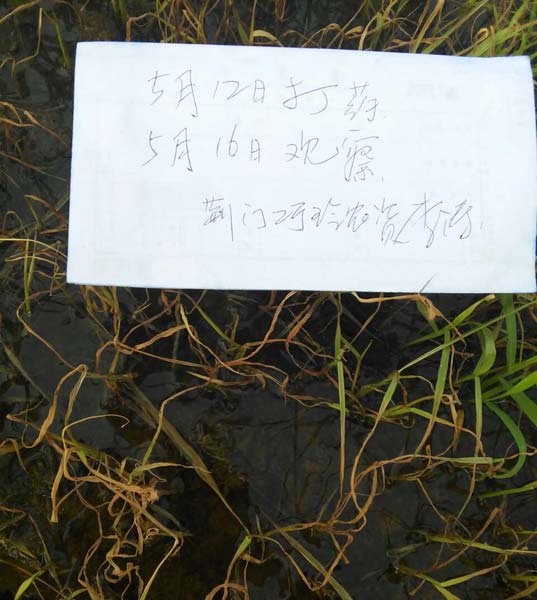 5月12日打药
5月16日观察
荆门 农资李